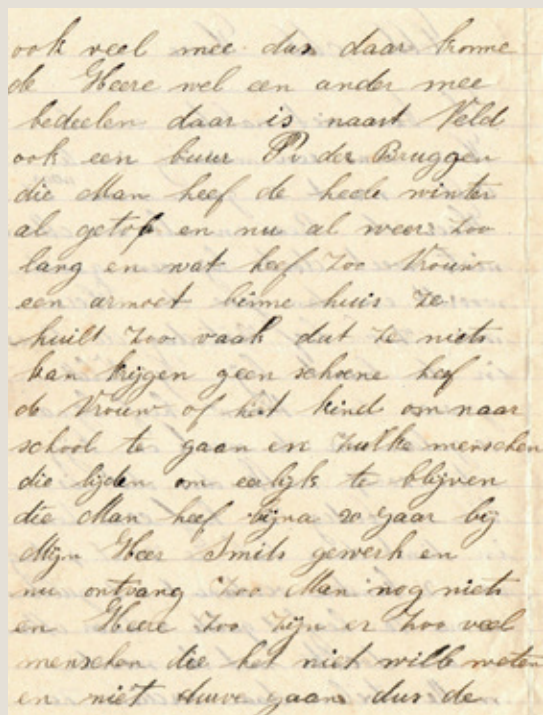 ook veel mee dus daar konne
de Heere wel een ander mee
bedeelen daar is naast Veld
ook een buur P v der Bruggen
die Man heef de heele winter
al getop en nu al weer zoo
lang en wat heef zoo Vrouw
een armoet binne huis ze
huilt zoo vaak dat ze niets
kan krijgen geen schoene heef
de Vrouw of het kind om naar
school te gaan en zulke menschen
die lijden om eerlijk te blijven
die Man heef bijna 20 yaar bij
Mijn Heer Smits gewerk en
nu ontvang zoo Man nog niets
en Heere zoo zijn er zoo veel
menschen die het niet wille weten
en niet duive gaan dus de